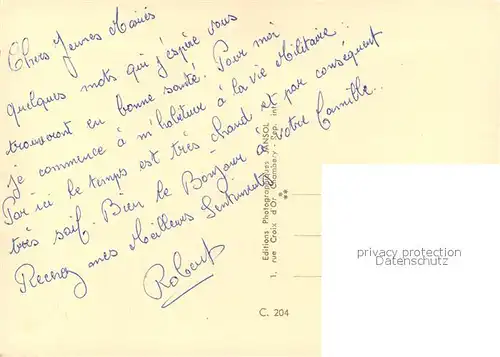 Chers Jeunes Mariés
quelques mots qui j'espère vous
trouveront en bonne santé. Pour moi
je commence à m'habituer à la vie Militaire.
Par ici le temps est très chaud et par conséquent
très soif. Bien le Bonjour à votre famille..
Recevez mes Meilleurs Sentiments
Robert
Editions Photographiques JANSOL
1, rue Croix d'Or, Chambéry - Rep. int.
C. 204
privacy protection
Datenschutz